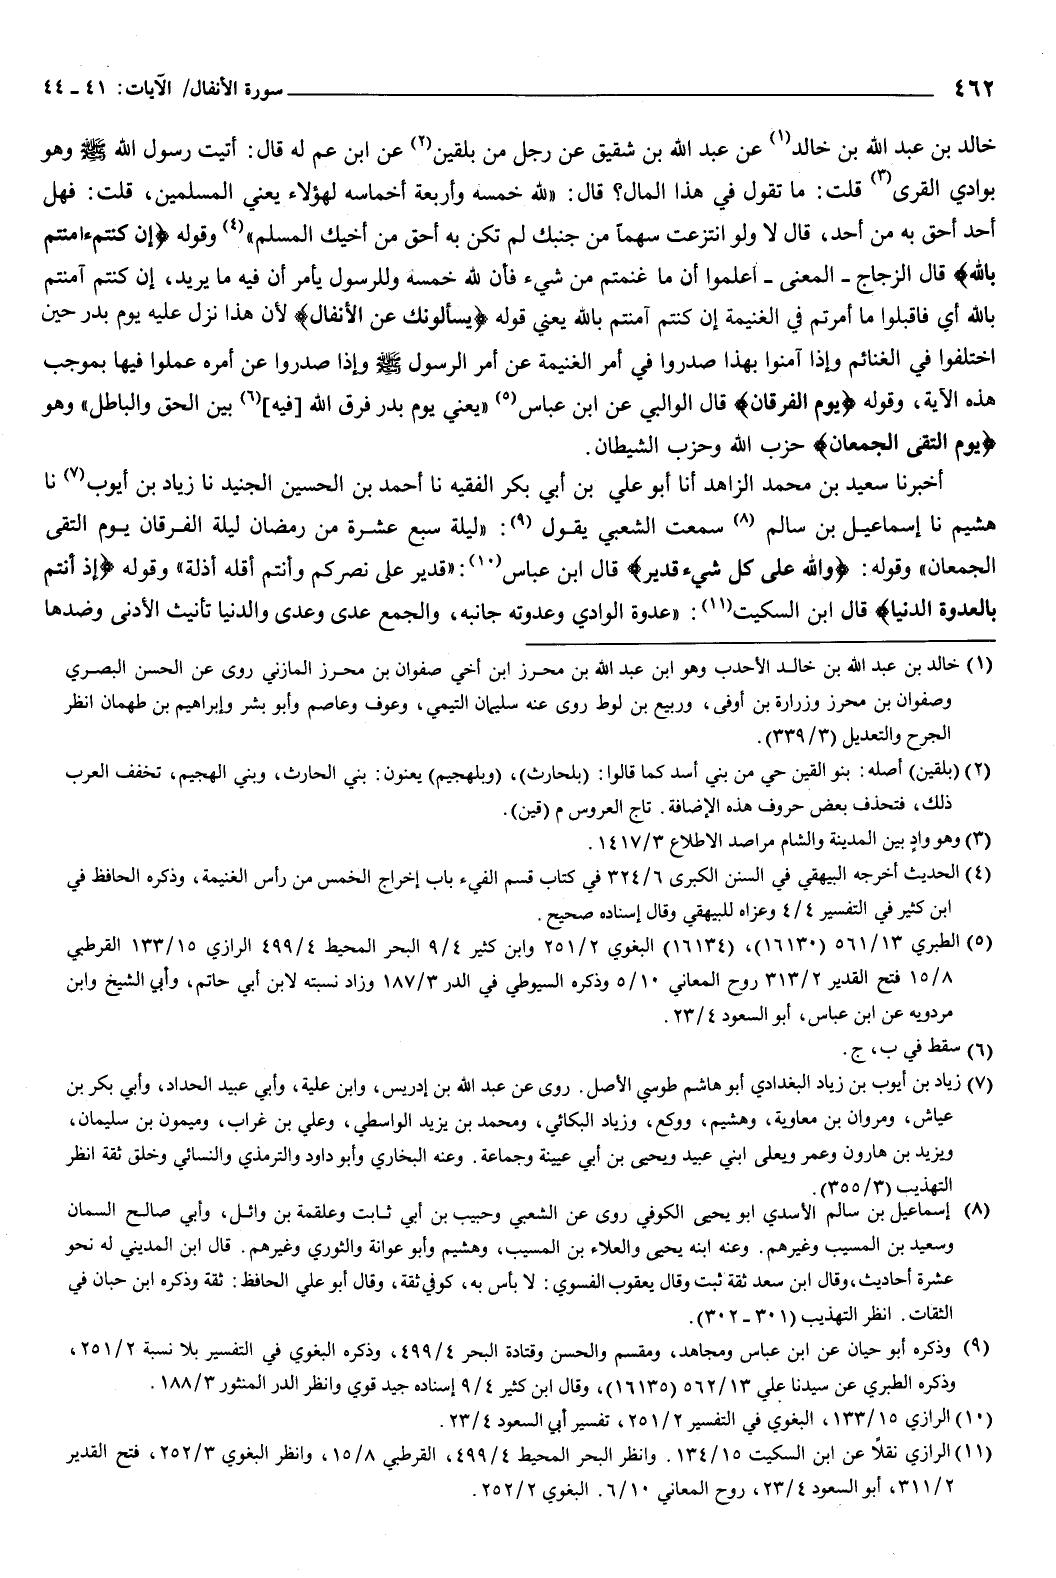 ٤٦٢ سورة الأنفال/ الآيات: ٤١ ـ ٤٤
خالد بن عبد الله بن خالد(١) عن عبد الله بن شقيق عن رجل من بلقين(٢) عن ابن عم له قال: أتيت رسول الله ﷺ وهو
بوادي القرى(٣) قلت: ما تقول في هذا المال؟ قال: «لله خمسه وأربعة أخماسه لهؤلاء يعني المسلمين، قلت: فهل
أحد أحق به من أحد، قال لا ولو انتزعت سهماً من جنبك لم تكن به أحق من أخيك المسلم»(٤) وقوله ﴿إن كنتم ءامنتم
بالله﴾ قال الزجاج ـ المعنى ـ اعلموا أن ما غنمتم من شيء فأن لله خمسه وللرسول يأمر أن فيه ما يريد، إن كنتم آمنتم
بالله أي فاقبلوا ما أمرتم في الغنيمة إن كنتم آمنتم بالله يعني قوله ﴿يسألونك عن الأنفال﴾ لأن هذا نزل عليه يوم بدر حين
اختلفوا في الغنائم وإذا آمنوا بهذا صدروا في أمر الغنيمة عن أمر الرسول ﷺ وإذا صدروا عن أمره عملوا فيها بموجب
هذه الآية، وقوله ﴿يوم الفرقان﴾ قال الوالبي عن ابن عباس(٥) «يعني يوم بدر فرق الله [فيه](٦) بين الحق والباطل» وهو
﴿يوم التقى الجمعان﴾ حزب الله وحزب الشيطان.
أخبرنا سعيد بن محمد الزاهد أنا أبو علي بن أبي بكر الفقيه نا أحمد بن الحسين الجنيد نا زياد بن أيوب(٧) نا
هشيم نا إسماعيل بن سالم (٨) سمعت الشعبي يقول (٩): «ليلة سبع عشرة من رمضان ليلة الفرقان يوم التقى
الجمعان» وقوله: ﴿والله على كل شيء قدير﴾ قال ابن عباس(١٠): «قدير على نصركم وأنتم أقله أذلة» وقوله ﴿إذ أنتم
بالعدوة الدنيا﴾ قال ابن السكيت(١١): «عدوة الوادي وعدوته جانبه، والجمع عدى وعدى والدنيا تأنيث الأدنى وضدها
(١) خالد بن عبد الله بن خالد الأحدب وهو ابن عبد الله بن محرز ابن أخي صفوان بن محرز المازني روى عن الحسن البصري
وصفوان بن محرز وزرارة بن أوفى، وربيع بن لوط روى عنه سليمان التيمي، وعوف وعاصم وأبو بشر وإبراهيم بن طهمان انظر
الجرح والتعديل (٣/ ٣٣٩).
(٢) (بلقين) أصله: بنو القين حي من بني أسد كما قالوا: (بلحارث)، (وبلهجيم) يعنون: بني الحارث، وبني الهجيم، تخفف العرب
ذلك، فتحذف بعض حروف هذه الإضافة. تاج العروس م (قين).
(٣) وهو وادٍ بين المدينة والشام مراصد الاطلاع ٣/ ١٤١٧.
(٤) الحديث أخرجه البيهقي في السنن الكبرى ٦/ ٣٢٤ في كتاب قسم الفيء باب إخراج الخمس من رأس الغنيمة، وذكره الحافظ في
ابن كثير في التفسير ٤/ ٤ وعزاه للبيهقي وقال إسناده صحيح.
(٥) الطبري ١٣/ ٥٦١ (١٦١٣٠)، (١٦١٣٤) البغوي ٢/ ٢٥١ وابن كثير ٤/ ٩ البحر المحيط ٤/ ٤٩٩ الرازي ١٥/ ١٣٣ القرطبي
٨/ ١٥ فتح القدير ٢/ ٣١٣ روح المعاني ١٠/ ٥ وذكره السيوطي في الدر ٣/ ١٨٧ وزاد نسبته لابن أبي حاتم، وأبي الشيخ وابن
مردويه عن ابن عباس، أبو السعود ٤/ ٢٣.
(٦) سقط في ب، ج.
(٧) زياد بن أيوب بن زياد البغدادي أبو هاشم طوسي الأصل. روى عن عبد الله بن إدريس، وابن علية، وأبي عبيد الحداد، وأبي بكر بن
عياش، ومروان بن معاوية، وهشيم، ووكع، وزياد البكائي، ومحمد بن يزيد الواسطي، وعلي بن غراب، وميمون بن سليمان،
ويزيد بن هارون وعمر ويعلى ابني عبيد ويحيى بن أبي عيينة وجماعة. وعنه البخاري وأبو داود والترمذي والنسائي وخلق ثقة انظر
التهذيب (٣/ ٣٥٥).
(٨) إسماعيل بن سالم الأسدي ابو يحيى الكوفي روى عن الشعبي وحبيب بن أبي ثابت وعلقمة بن وائل، وأبي صالح السمان
وسعيد بن المسيب وغيرهم. وعنه ابنه يحيى والعلاء بن المسيب، وهشيم وأبو عوانة والثوري وغيرهم. قال ابن المديني له نحو
عشرة أحاديث، وقال ابن سعد ثقة ثبت وقال يعقوب الفسوي: لا بأس به، كوفي ثقة، وقال أبو علي الحافظ: ثقة وذكره ابن حبان في
الثقات. انظر التهذيب (٣٠١ ـ ٣٠٢).
(٩) وذكره أبو حيان عن ابن عباس ومجاهد، ومقسم والحسن وقتادة البحر ٤/ ٤٩٩، وذكره البغوي في التفسير بلا نسبة ٢/ ٢٥١،
وذكره الطبري عن سيدنا علي ١٣/ ٥٦٢ (١٦١٣٥)، وقال ابن كثير ٤/ ٩ إسناده جيد قوي وانظر الدر المنثور ٣/ ١٨٨.
(١٠) الرازي ١٥/ ١٣٣، البغوي في التفسير ٢/ ٢٥١، تفسير أبي السعود ٤/ ٢٣.
(١١) الرازي نقلاً عن ابن السكيت ١٥/ ١٣٤. وانظر البحر المحيط ٤/ ٤٩٩، القرطبي ٨/ ١٥، وانظر البغوي ٣/ ٢٥٢، فتح القدير
٢/ ٣١١، أبو السعود ٤/ ٢٣، روح المعاني ١٠/ ٦. البغوي ٢/ ٢٥٢.